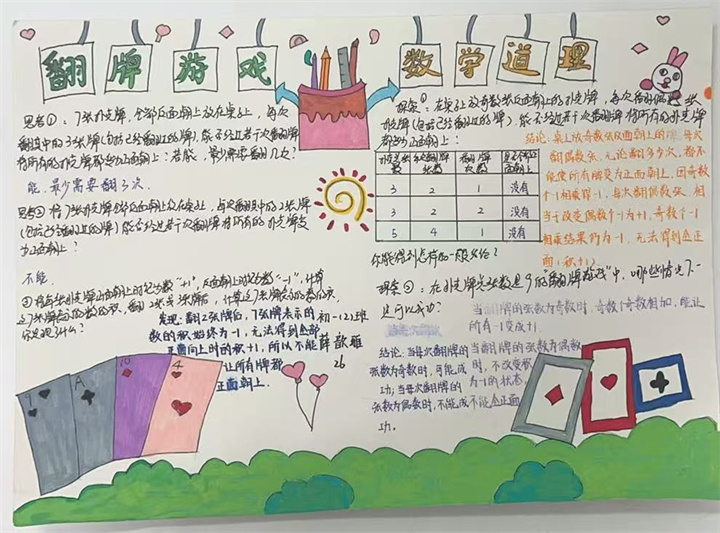 翻牌游戏
数学道理
思考①：7张扑克牌，全部反面朝上放在桌子上，每次
翻其中的3张牌(包括已经翻过的牌)能否经过若干次翻牌
将所有的扑克牌都变为正面朝上？若能，最少需要翻几次？
能，最少需要翻3次
思考② 将7张扑克牌全部反面朝上放在桌子上，每次翻其中的2张牌
(包括已经翻过的牌)能否经过若干次翻牌将所有的扑克牌变
为正面朝上？
不能
③ 将每张扑克牌正面朝上时记为数"+1"，反面朝上时记为数"-1"，计算
这7张牌表示的数的积，翻2张或3张牌后，计算这7张牌表示的数的积，
你发现了什么？
发现：翻2张牌后，7张牌表示的
数的积始终为-1，无法得到全部
正面向上时的积+1，所以不能
让所有牌都
正面朝上.
初一(2)班
薛歆雅
26
探索①：在桌子上放奇数张反面朝上的扑克牌，每次翻偶数张
扑克牌(包括已经翻过的牌)，能否经过若干次翻牌将所有的扑克牌
都变为正面朝上？
扑克张数 每次翻牌张数 翻牌次数 是否全部正面朝上
3 2 1 没有
3 2 2 没有
5 4 1 没有
你能得到怎样的一般结论？
结论：桌上放奇数张反面朝上的牌，每次
翻偶数张，无论翻多少次，都不
能使所有牌变为正面朝上，因奇数
个-1相乘得-1，每次翻偶数张，相
当于改变偶数个-1为+1，奇数个-1
相乘结果仍为-1，无法得到全正
面(积+1)
探索②：在扑克牌总张数是9的"翻牌游戏"中，哪些情况下
是可以成功？
当翻牌的张数为奇数时，奇数+奇数相加，能让
所有-1变成+1
结论：当每次翻牌的
张数为奇数时，可能成
功；当每次翻牌的
张数为偶数时，不能成
功.
当翻牌的张数为偶数
时，不改变积
为-1的状态，
不能全正面
A
10
4